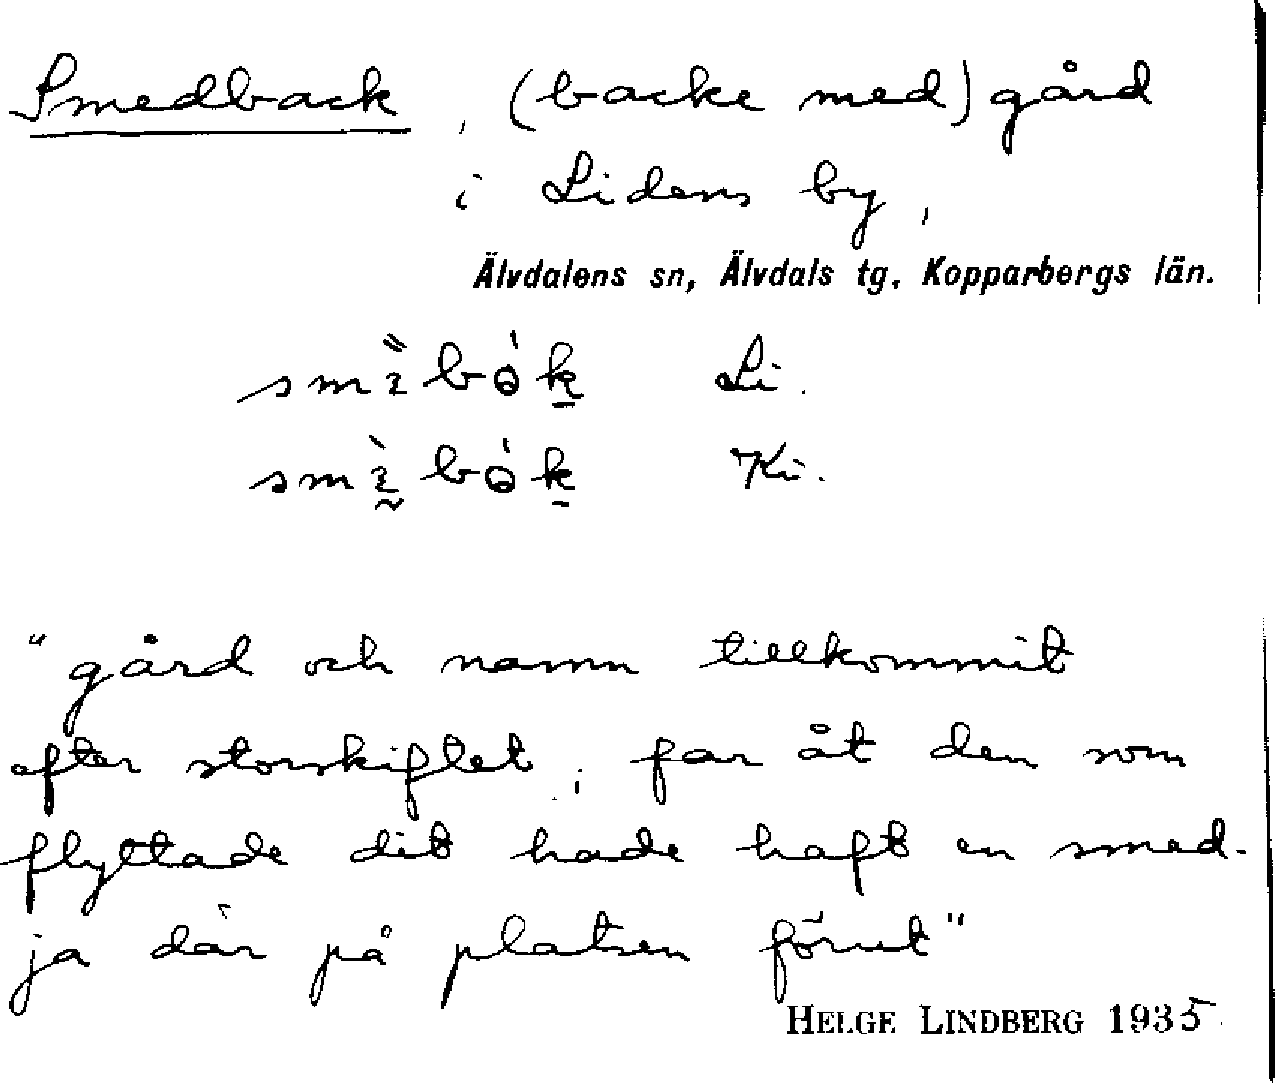 Smedback, (backe med) gård
i Lidens by,
Älvdalens sn, Älvdals tg, Kopparbergs län.
Li.
"gård och namn tillkommit
efter storskiftet, far åt den som
flyttade dit hade haft en smed-
ja där på platsen förut"
HELGE LINDBERG 1935